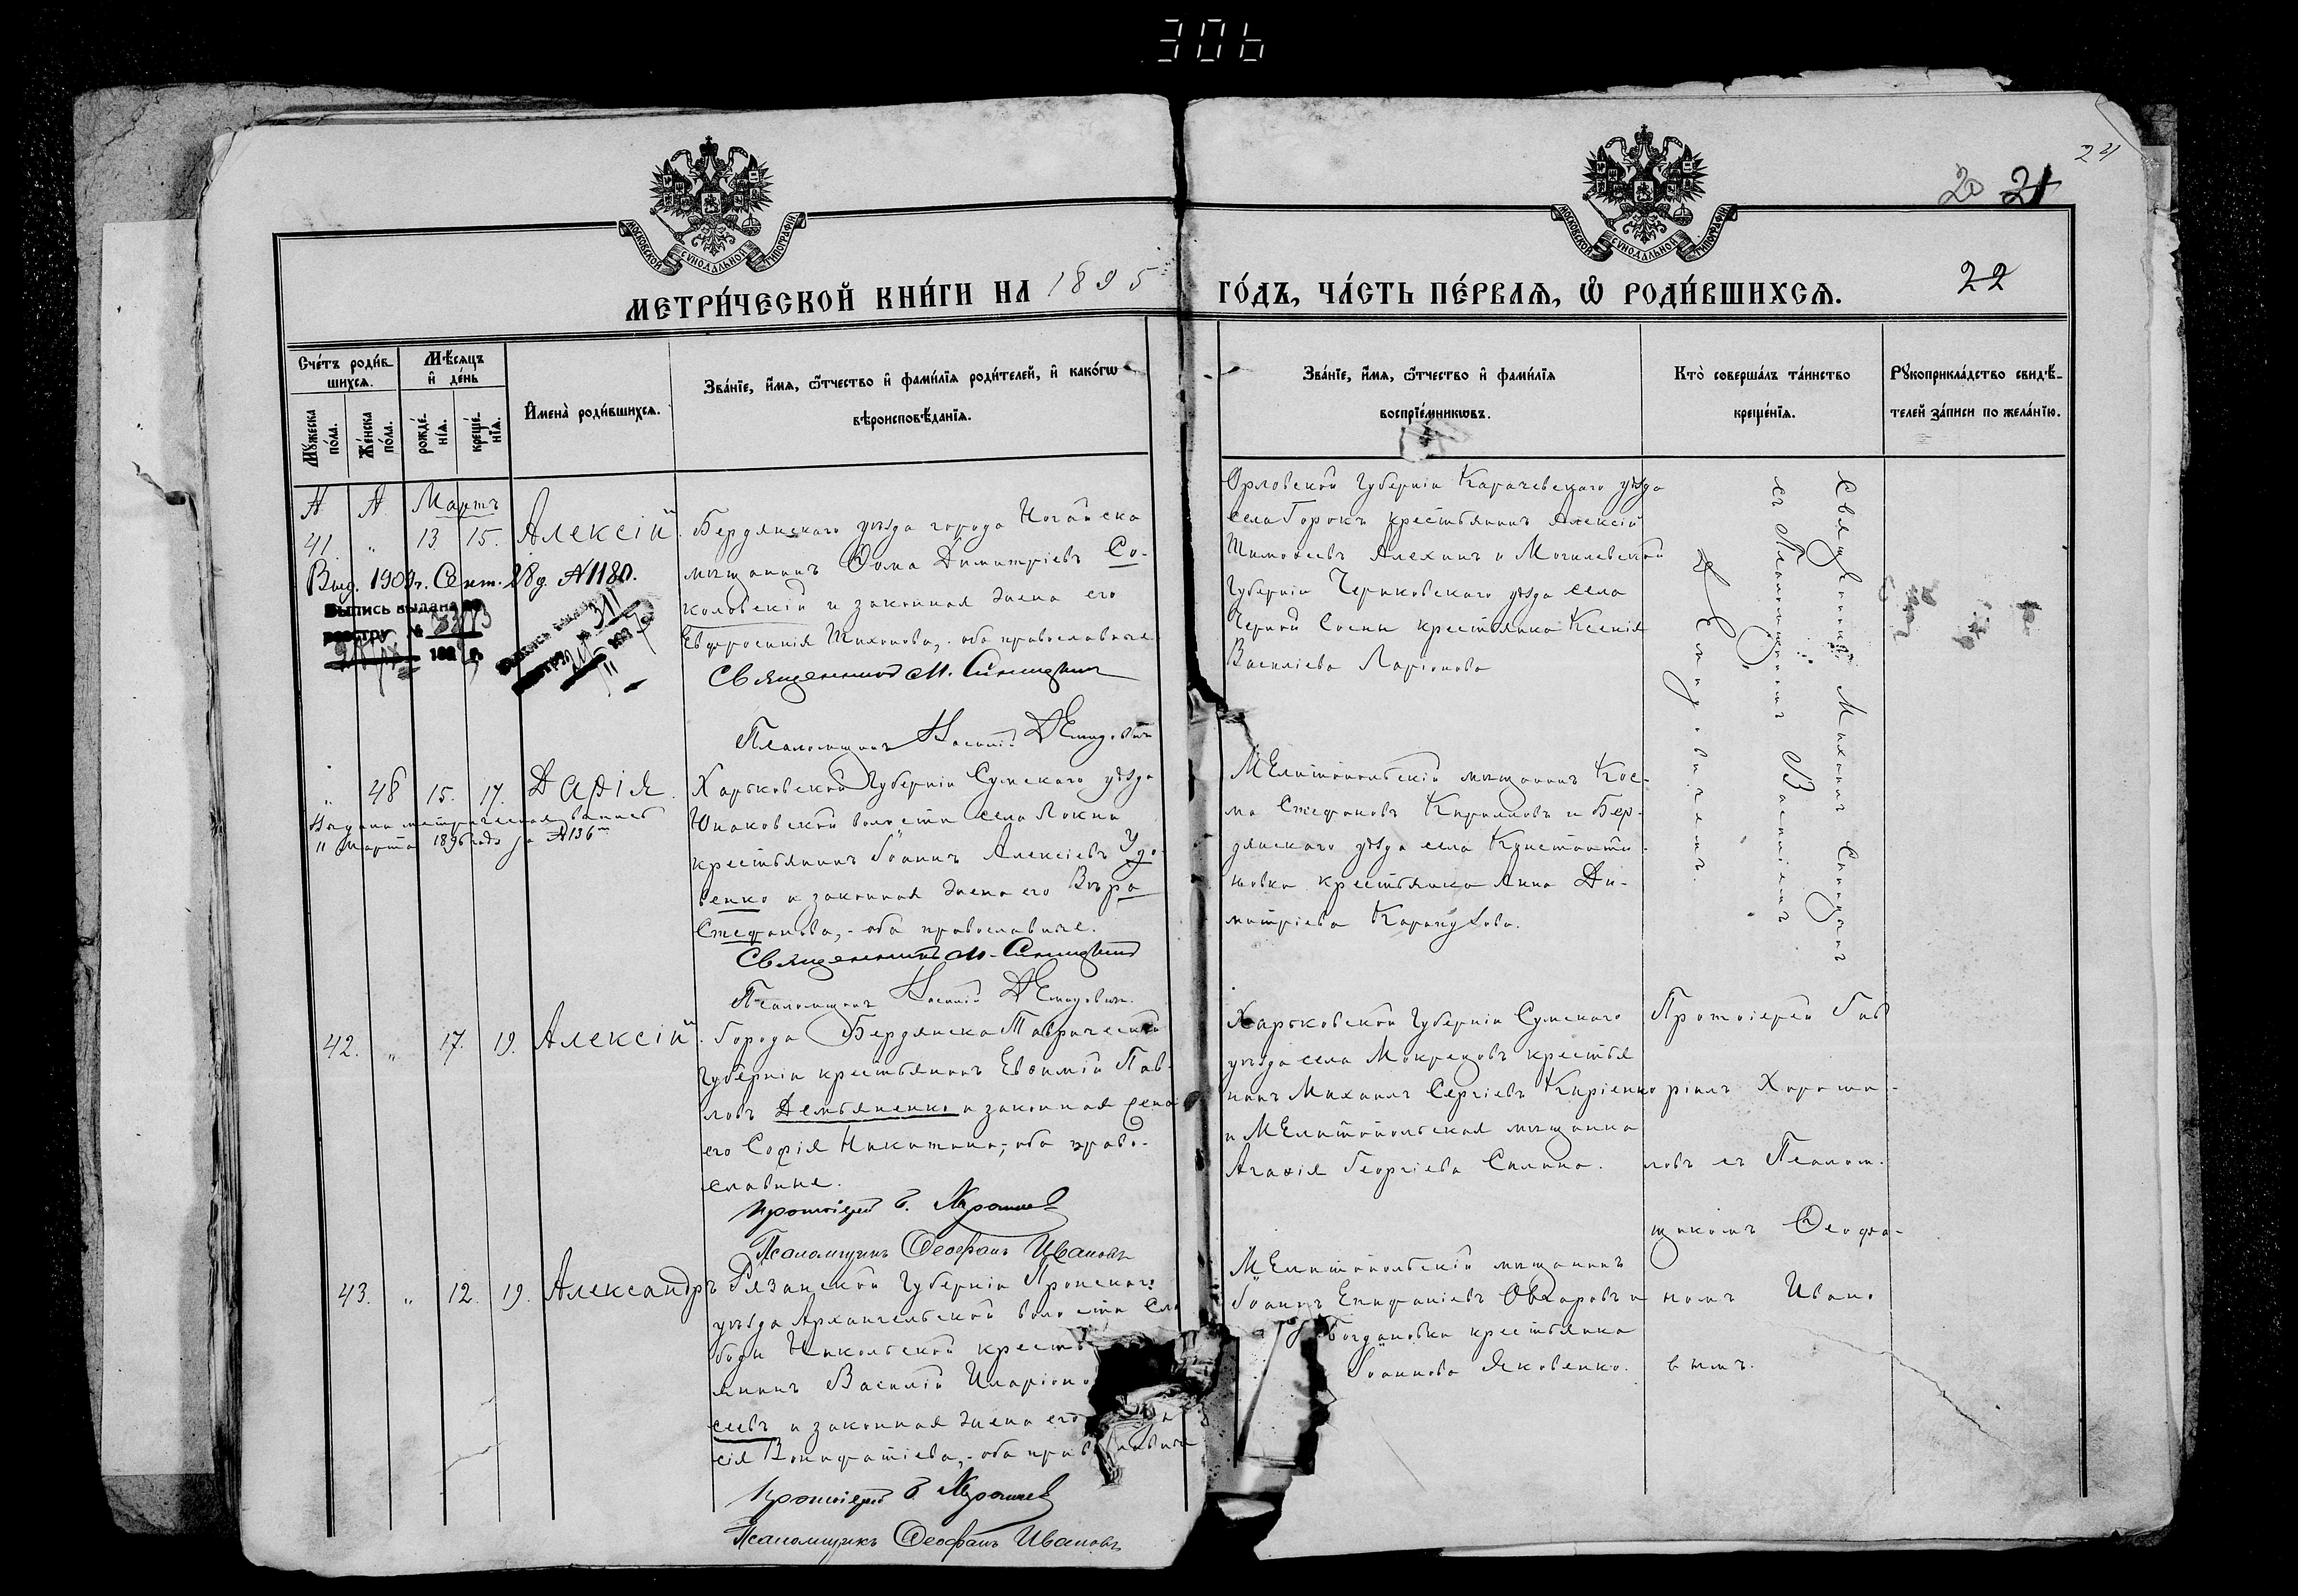 306
24
20 21
МОСКОВСКОЙ СѴНОДАЛЬНОЙ ТИПОГРАФІИ
МОСКОВСКОЙ СѴНОДАЛЬНОЙ ТИПОГРАФІИ
22
МЕТРИ́ЧЕСКОЙ КНИ́ГИ НА 1895 ГО́ДЪ, ЧА́СТЬ ПЕ́РВАѦ, Ѡ҆ РОДИ́ВШИХСѦ.
Счетъ роди́в-
шихсѧ.
Мѣ́сѧцъ
и҆ де́нь
Мꙋжеска по́ла.
Же́нска по́ла.
рожде́-
нїѧ.
креще́-
нїѧ.
И҆мена̀ роди́вшихсѧ.
Зва́нїе, и҆́мѧ, ѻ҆́тчество и҆ фами́лїѧ роди́телей, и҆ како́гѡ
вѣроисповѣ́данїѧ.
Зва́нїе, и҆́мѧ, ѻ҆́тчество и҆ фами́лїѧ
воспрїе́мникѡвъ.
Кто̀ соверша́лъ та́инство
креще́нїѧ.
Рꙋкоприкла́дство свидѣ́-
телей за́писи по жела́нїю.
№ № Мартъ
41. " 13 15. Алексій.
Выд. 1909г. Сент. 28д. №1180.
Выпись выдана по
реестру №
192 г.
Бердянскаго уѣзда города Ногайска
мѣщанинъ Ѳома Димитріевъ Со-
коловскій и законная жена его
Евфросинія Тихонова, - оба православные
Священникъ М. Синицкій
Псаломщикъ Василій Демидовичъ
Орловской Губерніи Карачевскаго уѣзда
села Горокъ крестьянинъ Алексій
Тимоѳеевъ Алехинъ и Могилевской
Губерніи Чериковскаго уѣзда села
Черной Сосны крестьянка Ксенія
Василіева Ларіонова
Священникъ Михаилъ Синицкій
съ Псаломщикомъ Василіемъ
Демидовичемъ.
" 48 15. 17. Дарія.
Выдана метрическая выпись
11 Марта 1896 года за №136
Харьковской Губерніи Сумскаго уѣзда
Юнаковской волости села Локни
крестьянинъ Іоаннъ Алексіевъ Удо-
венко и законная жена его Вѣра
Стефанова, - оба православные.
Священникъ М. Синицкій
Псаломщикъ Василій Демидовичъ.
Мелитопольскій мѣщанинъ Кос-
ма Стефановъ Кирилловъ и Бер-
дянскаго уѣзда села Константи-
новки крестьянка Анна Ди-
митріева
42. " 17. 19. Алексій.
Города Бердянска Таврической
Губерніи крестьянинъ Евѳимій Пав-
ловъ Демьяненко и законная жена
его Софія Никитина, оба право-
славные.
Протоіерей Г.
Псаломщикъ Ѳеофанъ Ивановъ
Харьковской Губерніи Сумскаго
уѣзда села Мокрецовъ крестья
нинъ Михаилъ Сергіевъ Киріенко
и Мелитопольская мѣщанка
Агаѳія Георгіева Силина.
Протоіерей Гав
ріилъ
ловъ съ Псалом-
щикомъ Ѳеофа-
номъ Ивано
вымъ.
43. " 12. 19. Александръ
Рязанской Губерніи Пронскаго
уѣзда Архангельской волости Сло
боды Никольской кресть
янинъ Василій Иларіоно
сіевъ и законная жена его
сія Вонифатіева, - оба православные
Протоіерей Г.
Псаломщикъ Ѳеофанъ Ивановъ
Мелитопольскій мѣщанинъ
Іоаннъ Епифаніевъ Овчаровъ и
Богдановки крестьянка
Іоаннова Яковенко.